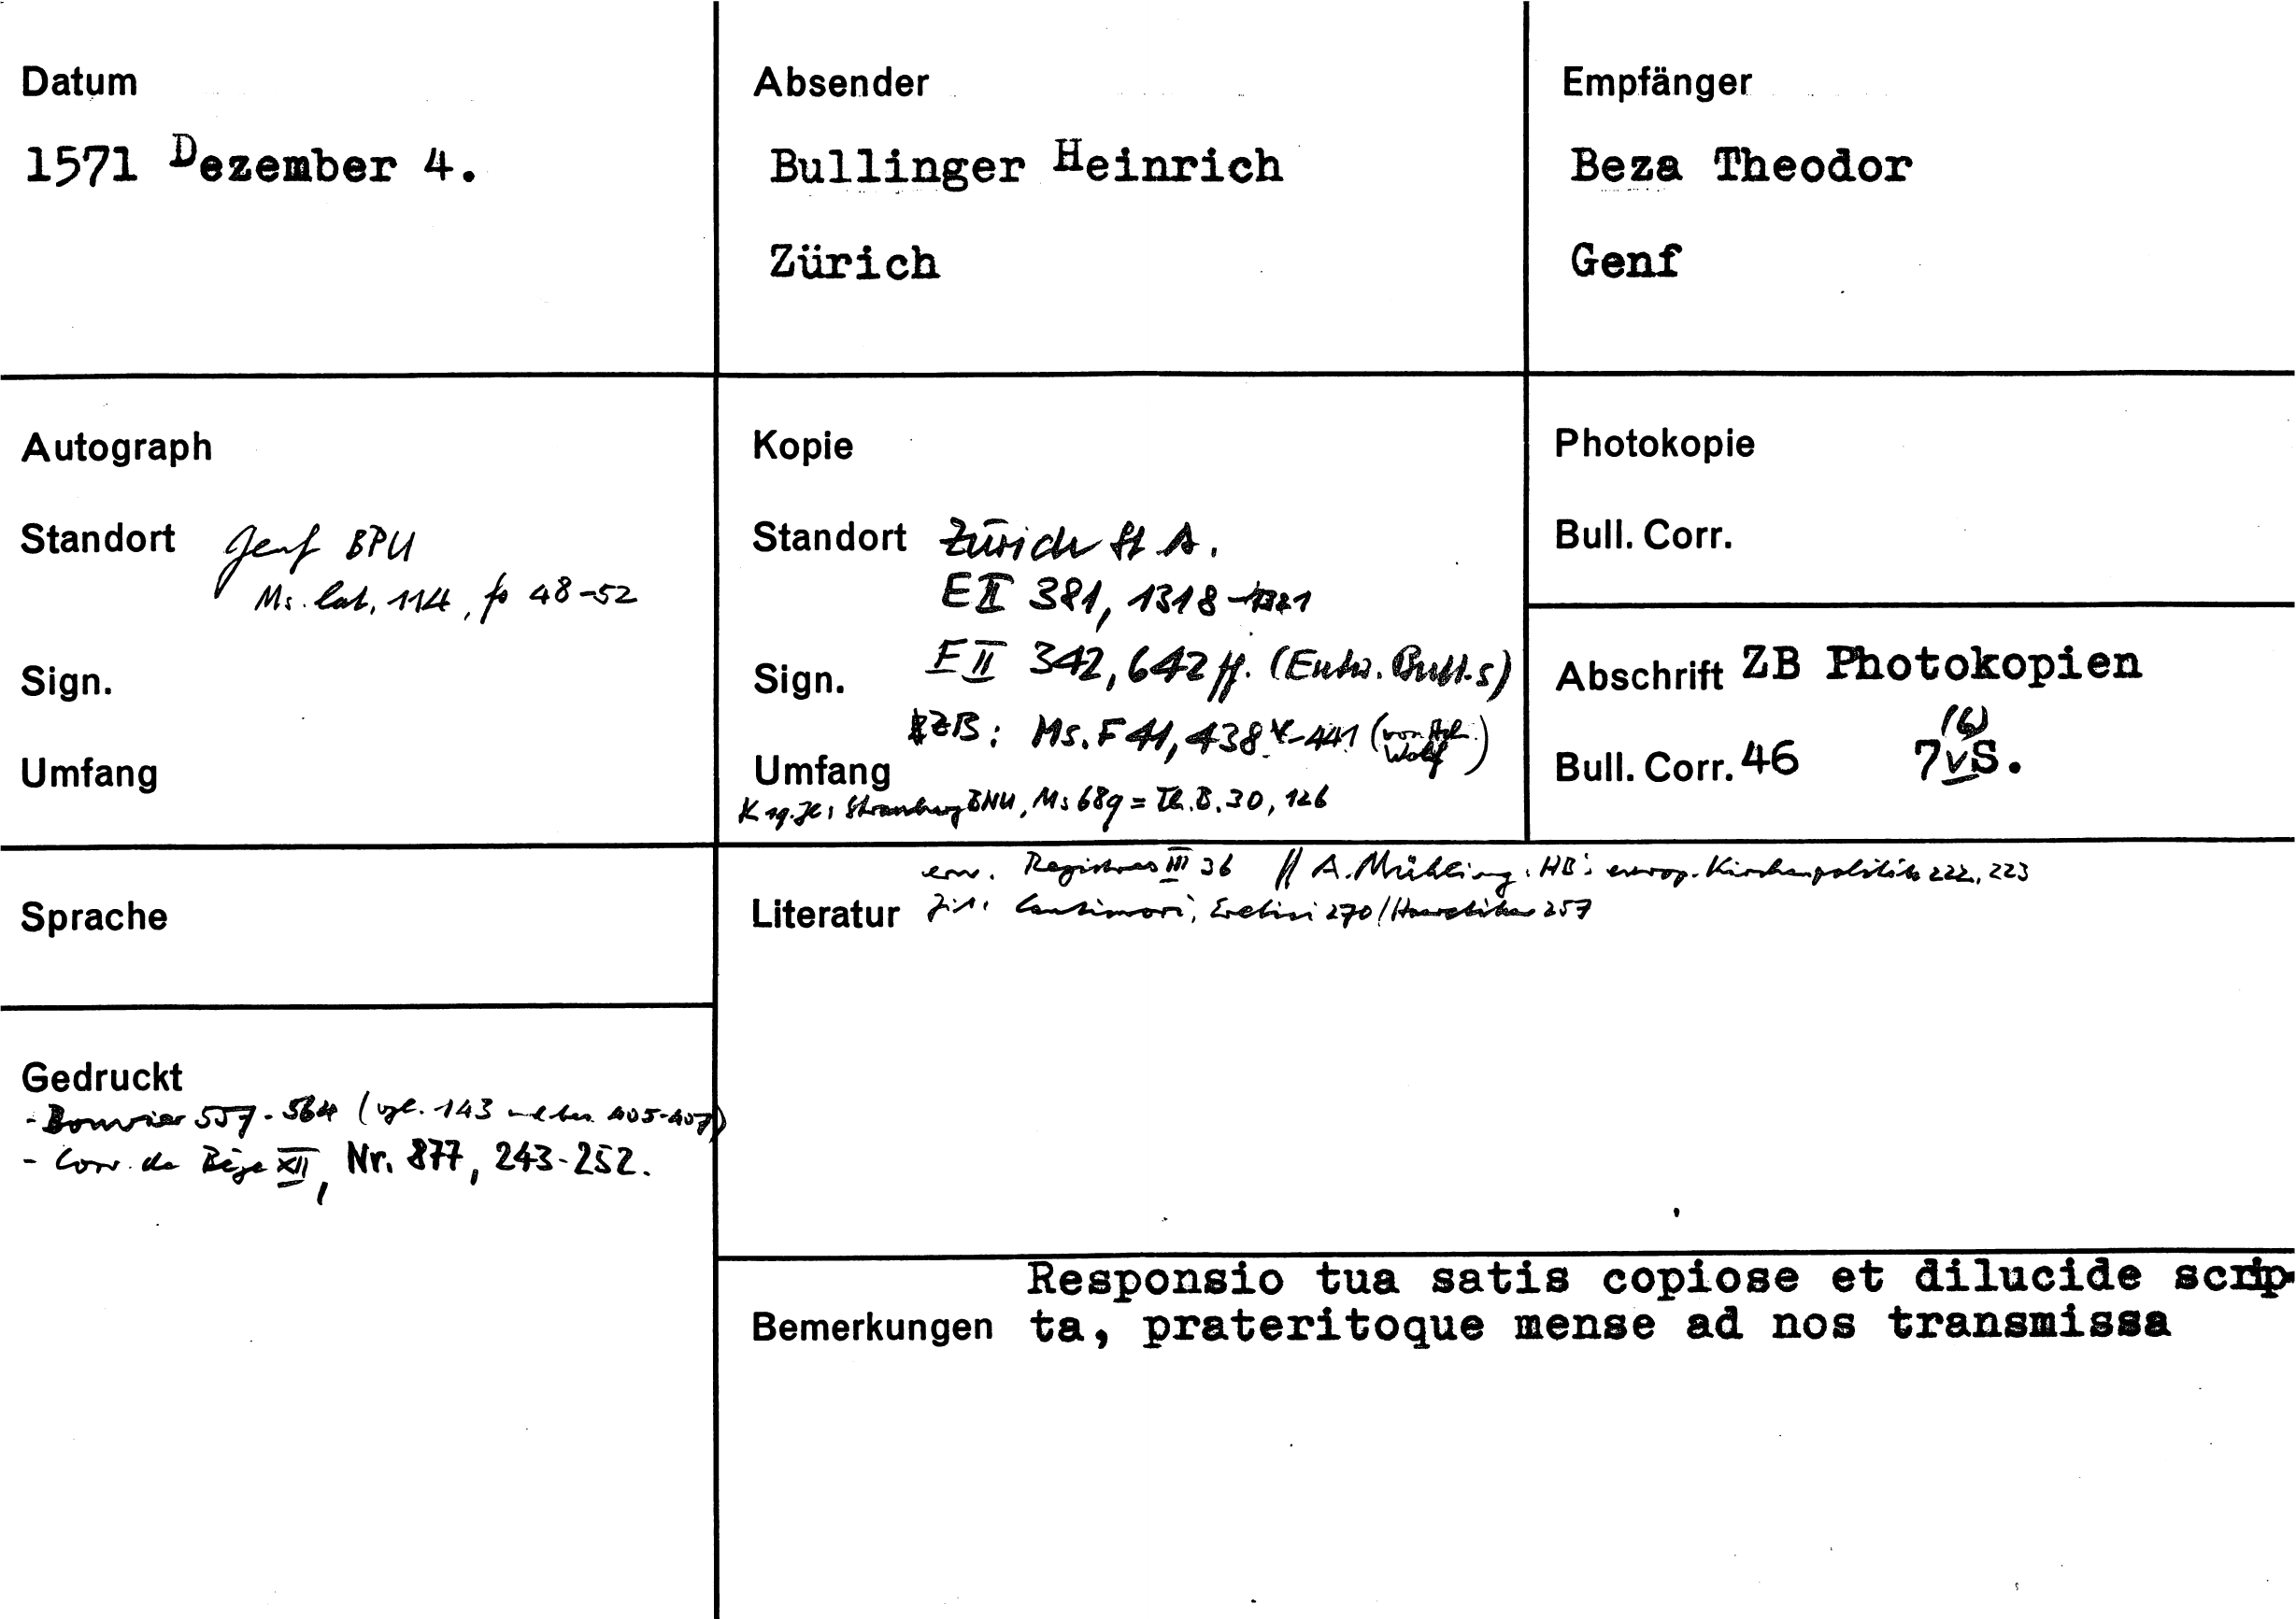 Datum
1571 Dezember 4.
Absender
Bullinger Heinrich
Zürich
Empfänger
Beza Theodor
Genf
Autograph
Standort Genf BPU
Ms. lat. 114, fo 48-52
Sign.
Umfang
Kopie
Standort Zürich St A.
E II 381, 1318-1321
Sign. E II 342, 642 ff. (Entw. Bull.s)
ZB: Ms. F 41, 438 v-441 (von Wolf)
Umfang
K 19. Jh: Strassburg BNU, Ms 689 = Th. B. 30, 126
Photokopie
Bull. Corr.
Abschrift ZB Photokopien
(6)
Bull. Corr. 46 7vS.
Sprache
erw. Registres III 36 // A. Mühling: HB: europ. Kirchenpolitik 222, 223
Literatur Zit. Cantimori, Eretici 270 / Haeretiker 257
Gedruckt
- Bouvier 557-564 (vgl. 143 405-407)
- Corr. de Bèze XII, Nr. 877, 243-252.
Responsio tua satis copiose et dilucide scrip-
Bemerkungen ta, prateritoque mense ad nos transmissa